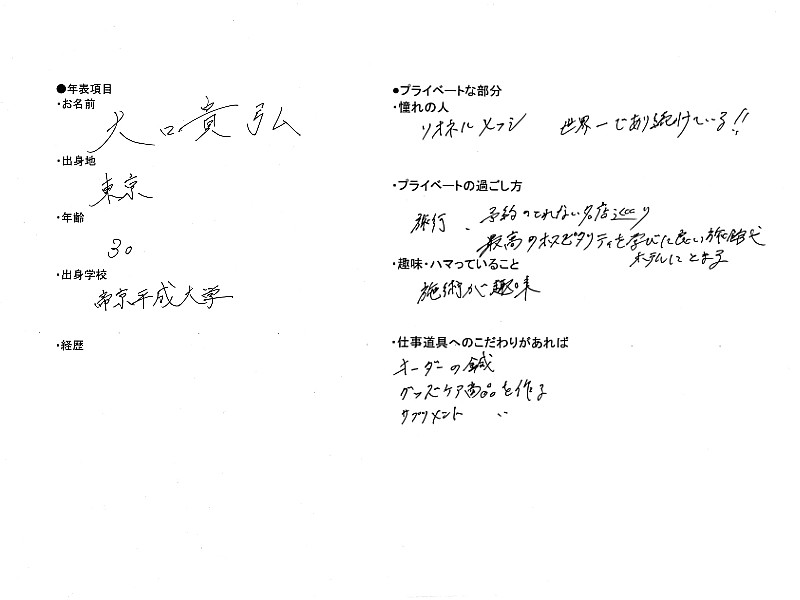 ●年表項目
・お名前
大口貴弘
・出身地
東京
・年齢
30
・出身学校
帝京平成大学
・経歴
●プライベートな部分
・憧れの人
リオネル メッシ 世界一であり続けている!!
・プライベートの過ごし方
旅行、予約のとれない名店巡り
最高のホスピタリティを学びに良い旅館や
ホテルにとまる
・趣味・ハマっていること
施術が趣味
・仕事道具へのこだわりがあれば
オーダーの鍼
グッズケア商品を作る
サプリメント 〃